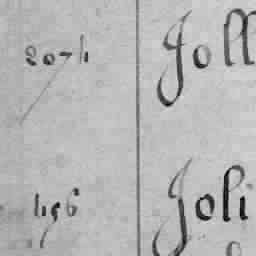 2074 Joll
496 Joli